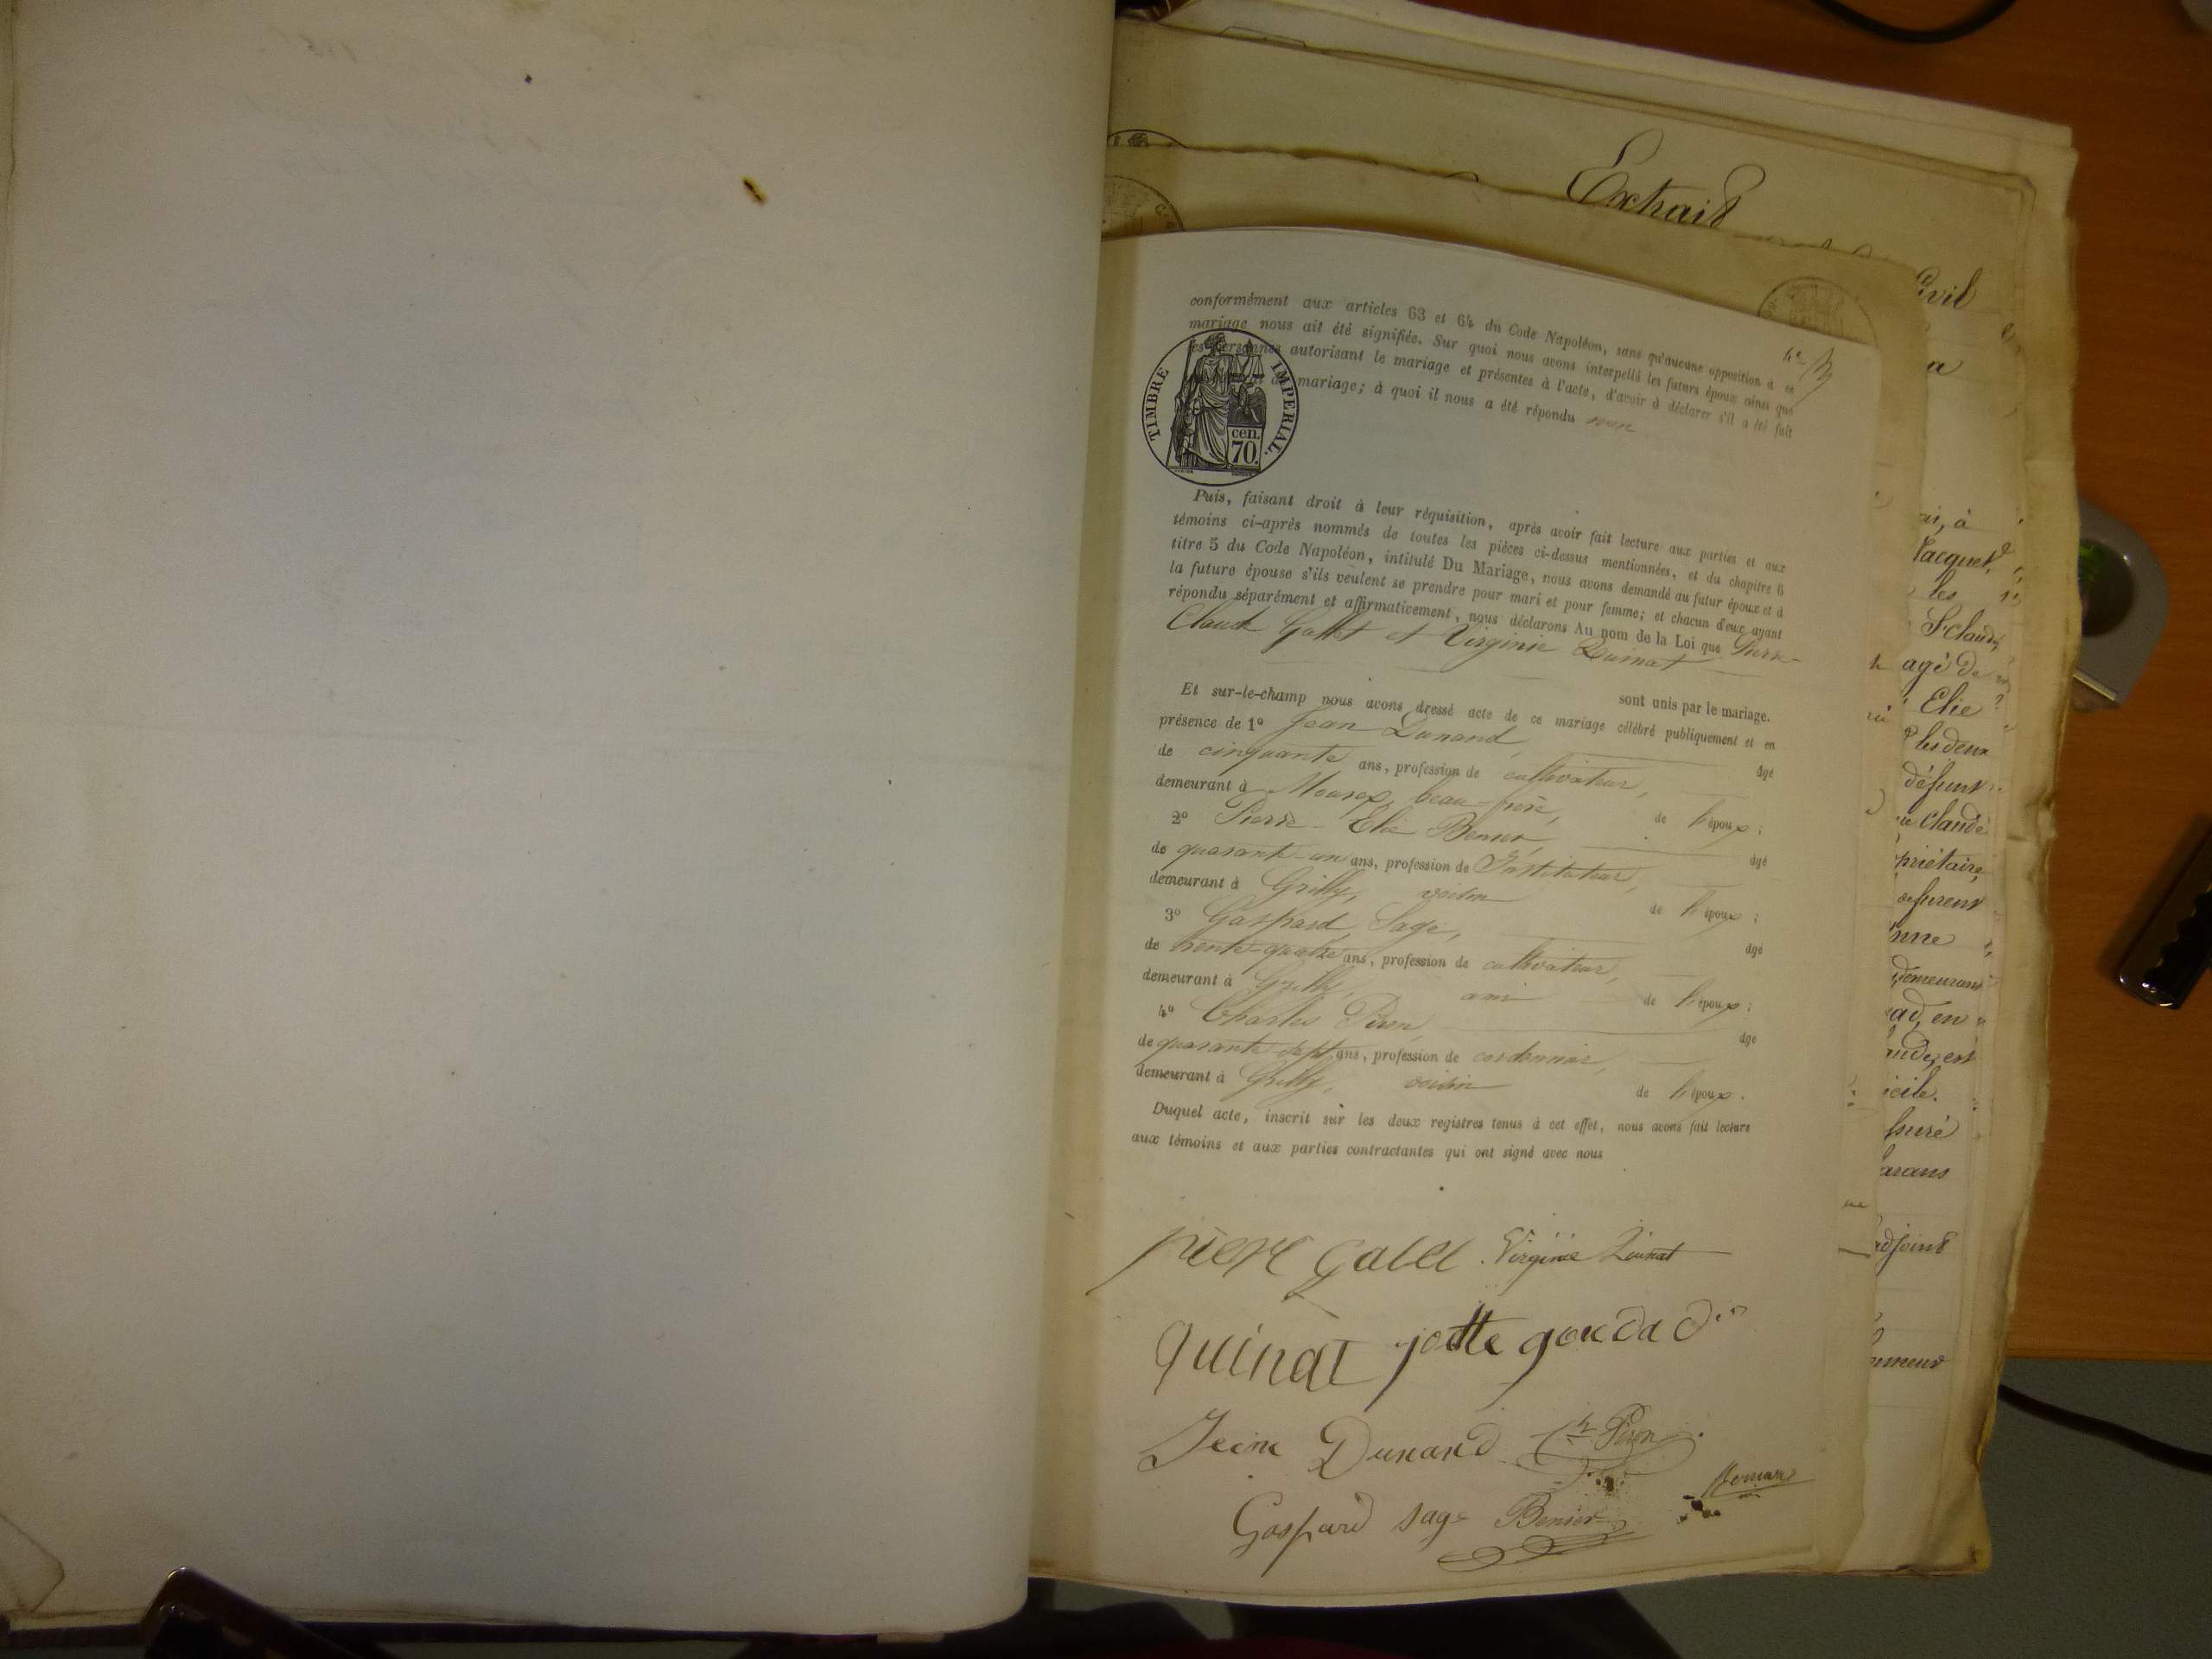 Extrait
Civil
a
conformément aux articles 63 et 64 du Code Napoléon, sans qu'aucune opposition à ce
mariage nous ait été signifiée. Sur quoi nous avons interpellé les futurs époux ainsi que
les personnes autorisant le mariage et présentes à l'acte, d'avoir à déclarer s'il a été fait
mariage; à quoi il nous a été répondu non
TIMBRE IMPERIAL.
cen.
70.
Puis, faisant droit à leur réquisition, après avoir fait lecture aux parties et aux
témoins ci-après nommés de toutes les pièces ci-dessus mentionnées, et du chapitre 6
titre 5 du Code Napoléon, intitulé Du Mariage, nous avons demandé au futur époux et à
la future épouse s'ils veulent se prendre pour mari et pour femme; et chacun d'eux ayant
répondu séparément et affirmativement, nous déclarons Au nom de la Loi que Pierre-
Claude Gallet et Virginie Quinat
sont unis par le mariage.
Et sur-le-champ nous avons dressé acte de ce mariage célébré publiquement et en
présence de 1º Jean Dunand, âgé
de cinquante ans, profession de cultivateur,
demeurant à Mourex, beau-père, de l'époux;
2º Pierre-Elie Benier, âgé
de quarante-un ans, profession de Instituteur,
demeurant à Grilly, voisin de l'époux;
3º Gaspard Sage, âgé
de trente-quatre ans, profession de cultivateur,
demeurant à Grilly, ami de l'époux;
4º Charles Piron, âgé
de quarante-sept ans, profession de cordonnier,
demeurant à Grilly, voisin de l'époux.
Duquel acte, inscrit sur les deux registres tenus à cet effet, nous avons fait lecture
aux témoins et aux parties contractantes qui ont signé avec nous
Virginie Quinat
quinat jotte
Dunand Piron
Gaspard Sage Benier
Jacquet,
les
St Claude,
agé de
Elie
les deux
défunt
Claude
demeurant
en
adjoint